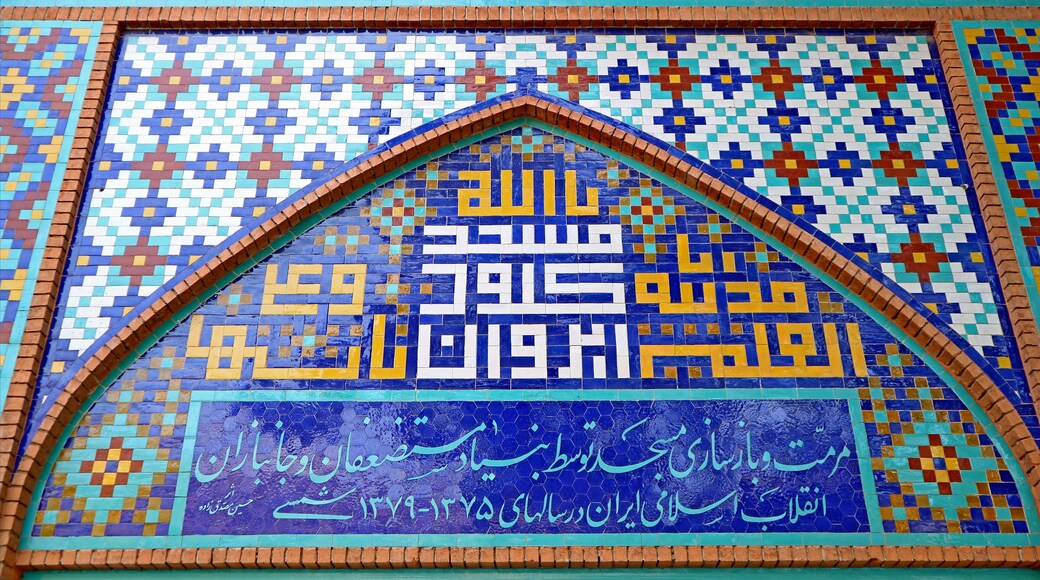 یا الله
مسجد
کبود
ایروان
انا مدینه
العلم
وعلی
بابها
مرمّت و بازسازی مسجد توسط بنیاد مستضعفان و جانبازان
انقلاب اسلامی ایران در سالهای ۱۳۷۵-۱۳۷۹ شمسی